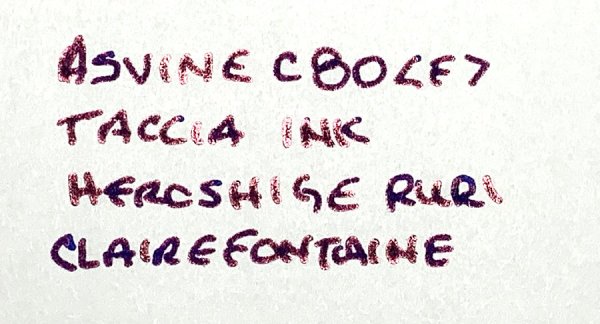 ASVINE C80 <EF>
TACCIA INK
HEROSHIGE RURI
CLAIREFONTAINE